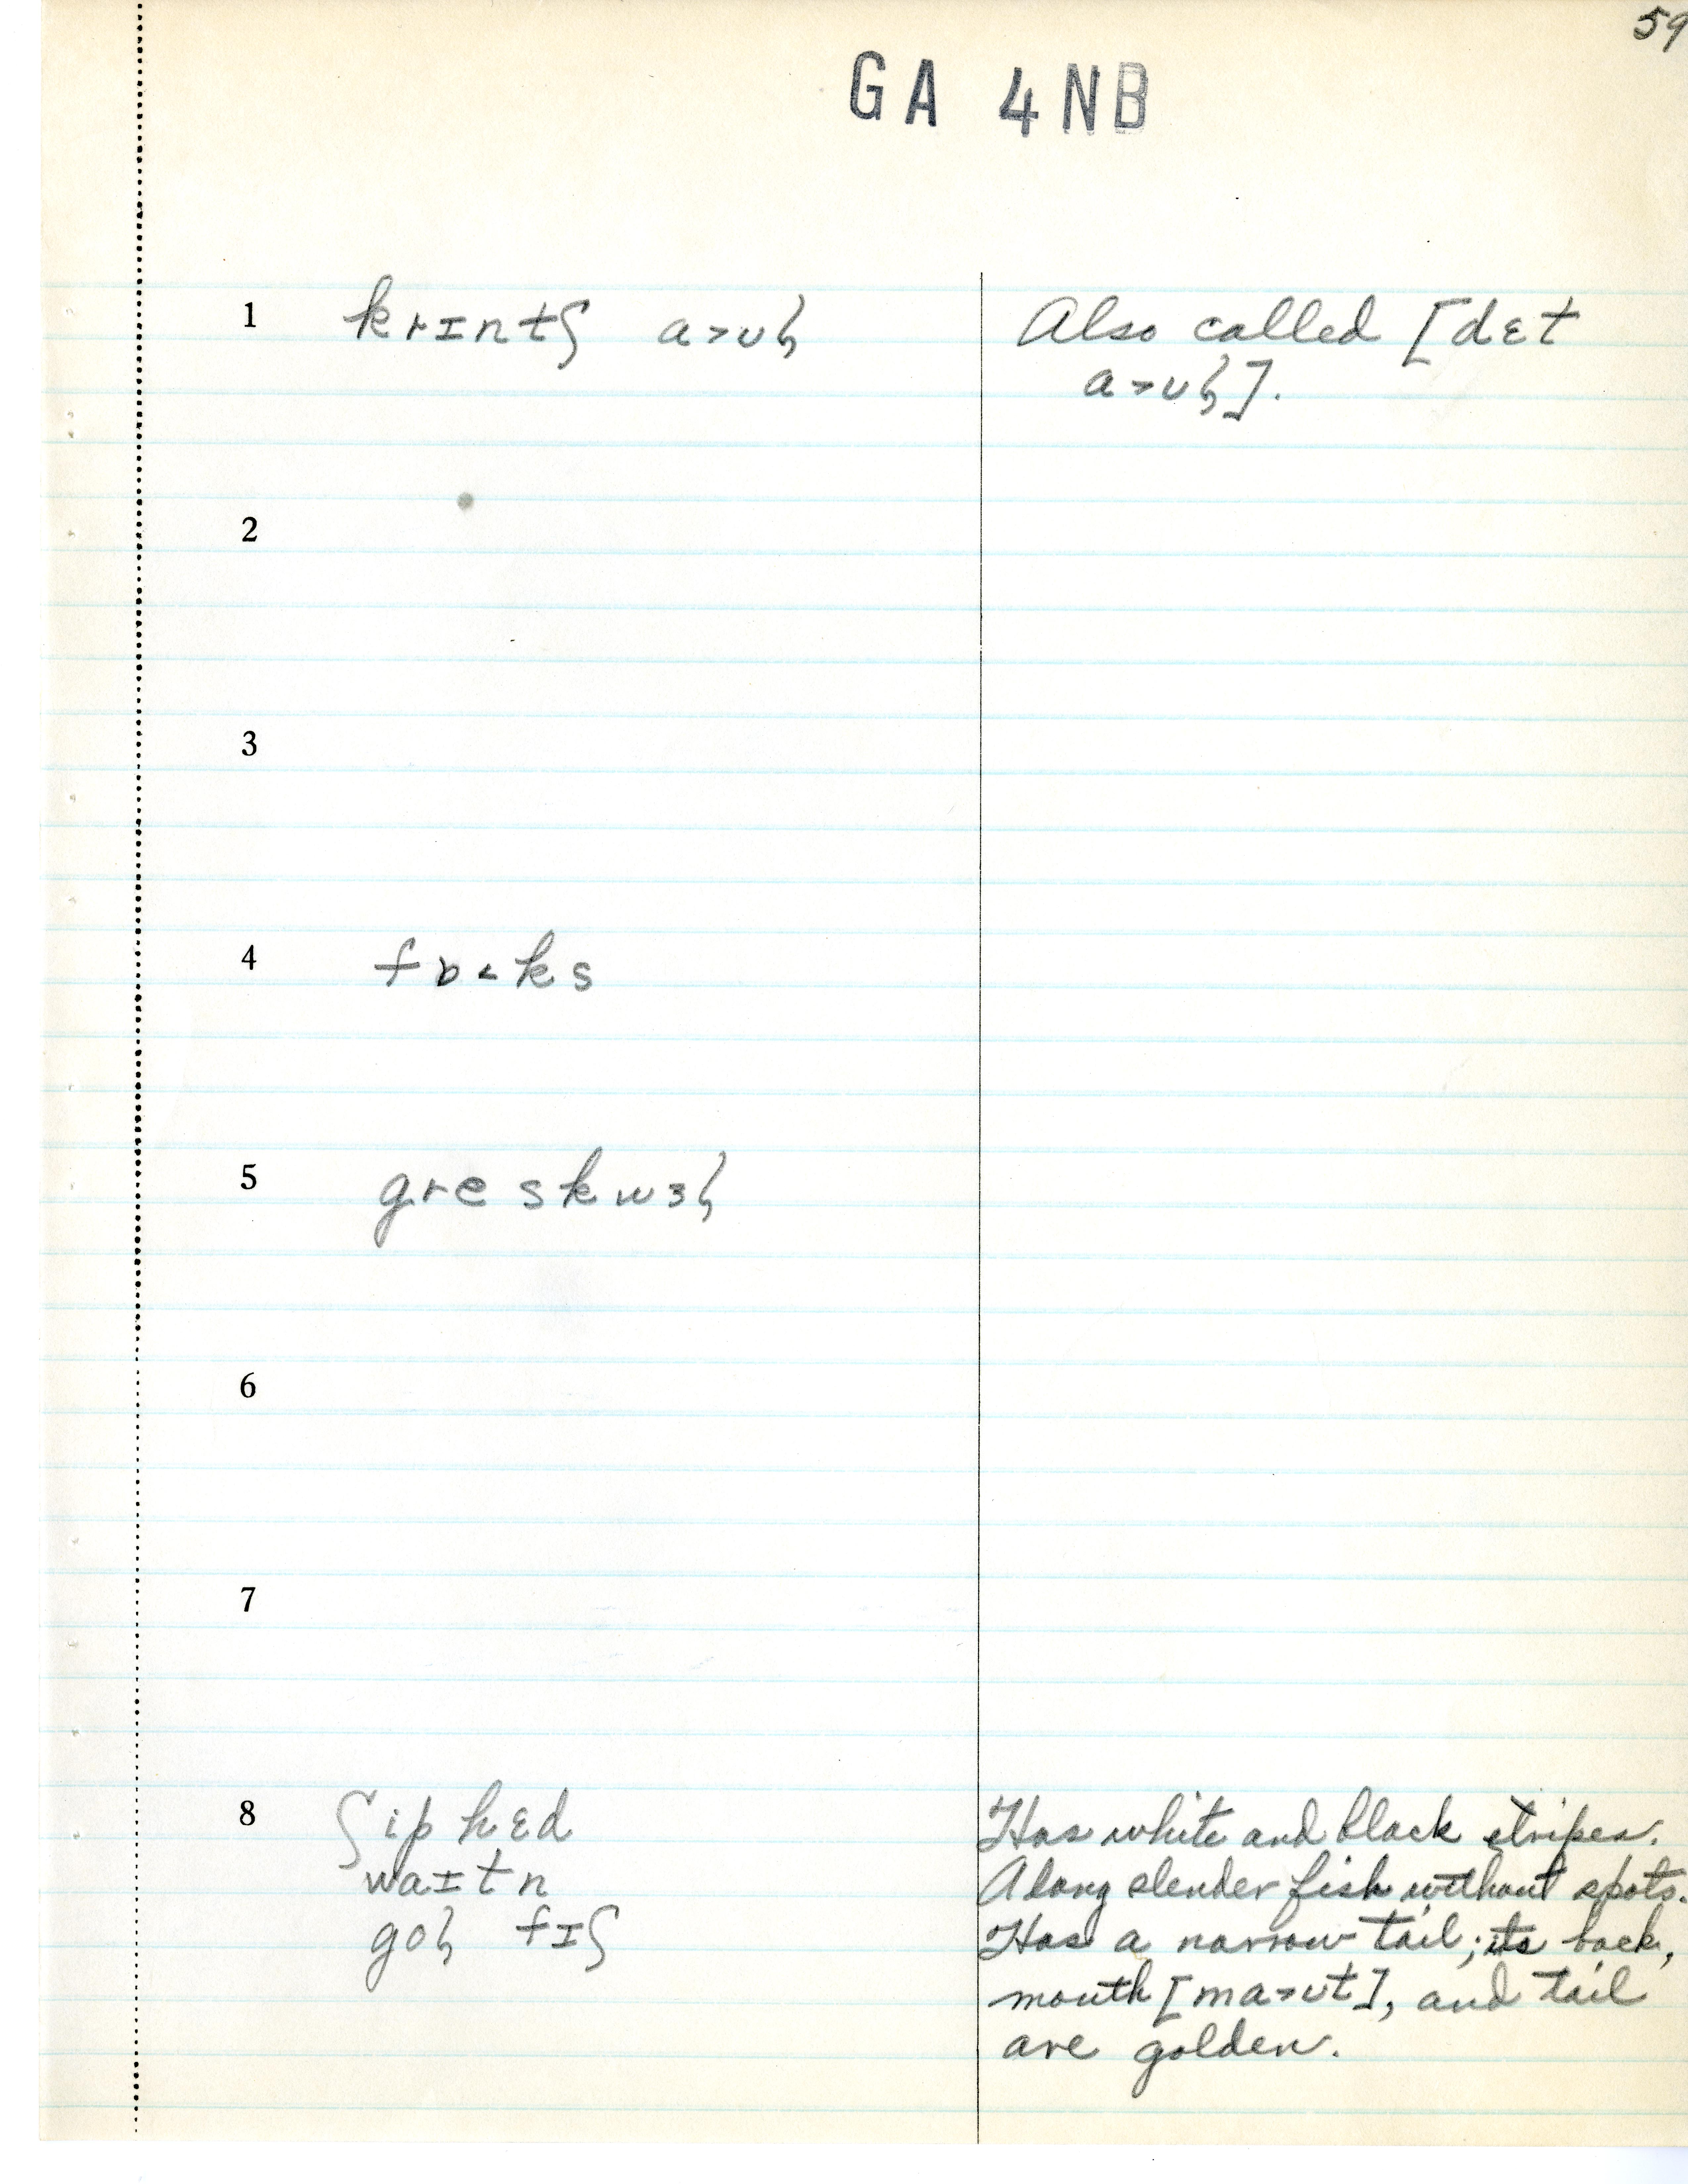 59
GA 4NB
1 krɪntʃ a>ʊɫ Also called [dɛt
a>ʊɫ].
2
3
4 fɒ<ks
5 gre skwɜɫ
6
7
8 ʃip hɛd Has white and black stripes.
waɪtn A long slender fish without spots.
goɫ fɪʃ Has a narrow tail; its back,
mouth [ma>ʊt], and tail
are golden.